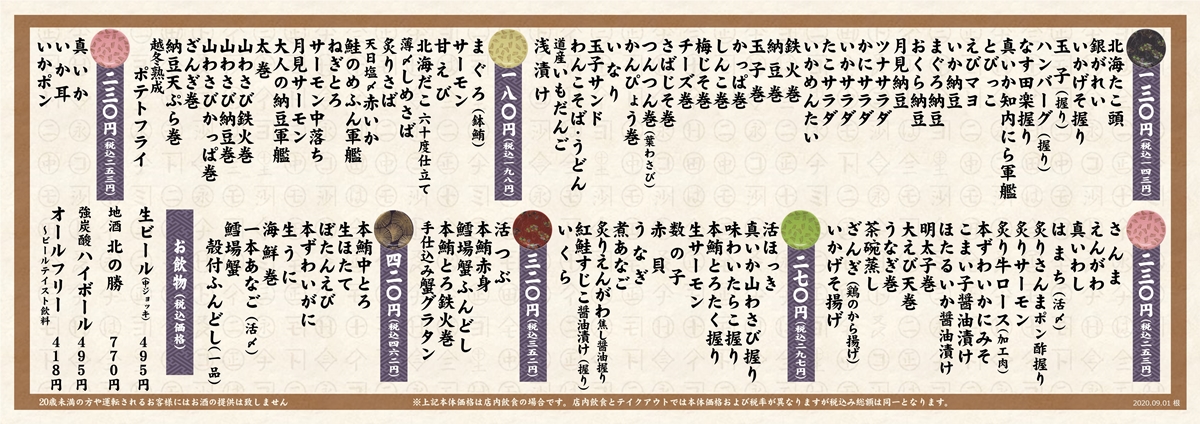 一三〇円(税込一四三円)
北海たこ頭
銀がれい
いかげそ握り
玉子(握り)
ハンバーグ(握り)
なす田楽握り
真いか知内にら軍艦
とびっこ
えびマヨ
いか納豆
まぐろ納豆
おくら納豆
月見納豆
ツナサラダ
かにサラダ
いかサラダ
たこサラダ
いかめんたい
鉄火巻
納豆巻
玉子巻
かっぱ巻
しんこ巻
梅じそ巻
チーズ巻
さばじそ巻
つんつん巻(葉わさび)
かんぴょう巻
いなり
玉子サンド
わんこそば・うどん
道産いもだんご
浅漬け
一八〇円(税込一九八円)
まぐろ(鉢鮪)
サーモン
甘えび
北海だこ六十度仕立て
薄〆しめさば
炙りさば
天日塩〆赤いか
鮭のめふん軍艦
ねぎとろ
サーモン中落ち
月見サーモン
大人の納豆軍艦
太巻
山わさび鉄火巻
山わさび納豆巻
山わさびかっぱ巻
ざんぎ巻
納豆天ぷら巻
越冬熟成
ポテトフライ
二三〇円(税込二五三円)
真いか
いか耳
いかポン
二三〇円(税込二五三円)
さんま
えんがわ
真いわし
はまち(活〆)
炙りさんまポン酢握り
炙りサーモン
炙り牛ロース(加工肉)
本ずわいかにみそ
こまい子醤油漬け
ほたるいか醤油漬け
明太子巻
大えび天巻
うなぎ巻
茶碗蒸し
ざんぎ(鶏のから揚げ)
いかげそ揚げ
二七〇円(税込二九七円)
活ほっき
真いか山わさび握り
味わいたらこ握り
本鮪とろたく握り
生サーモン
数の子
赤貝
うなぎ
煮あなご
炙りえんがわ焦し醤油握り
紅鮭すじこ醤油漬け(握り)
いくら
三二〇円(税込三五二円)
活つぶ
本鮪赤身
鱈場蟹ふんどし
本鮪とろ鉄火巻
手仕込み蟹グラタン
四二〇円(税込四六二円)
本鮪中とろ
生ほたて
ぼたんえび
本ずわいがに
生うに
海鮮巻
一本あなご(活〆)
鱈場蟹
殻付ふんどし(一品)
お飲物(税込価格)
生ビール(中ジョッキ) 495円
地酒 北の勝 770円
強炭酸ハイボール 495円
オールフリー 418円
～ビールテイスト飲料
20歳未満の方や運転されるお客様にはお酒の提供は致しません
※上記本体価格は店内飲食の場合です。店内飲食とテイクアウトでは本体価格および税率が異なりますが税込み総額は同一となります。
2020.09.01 根